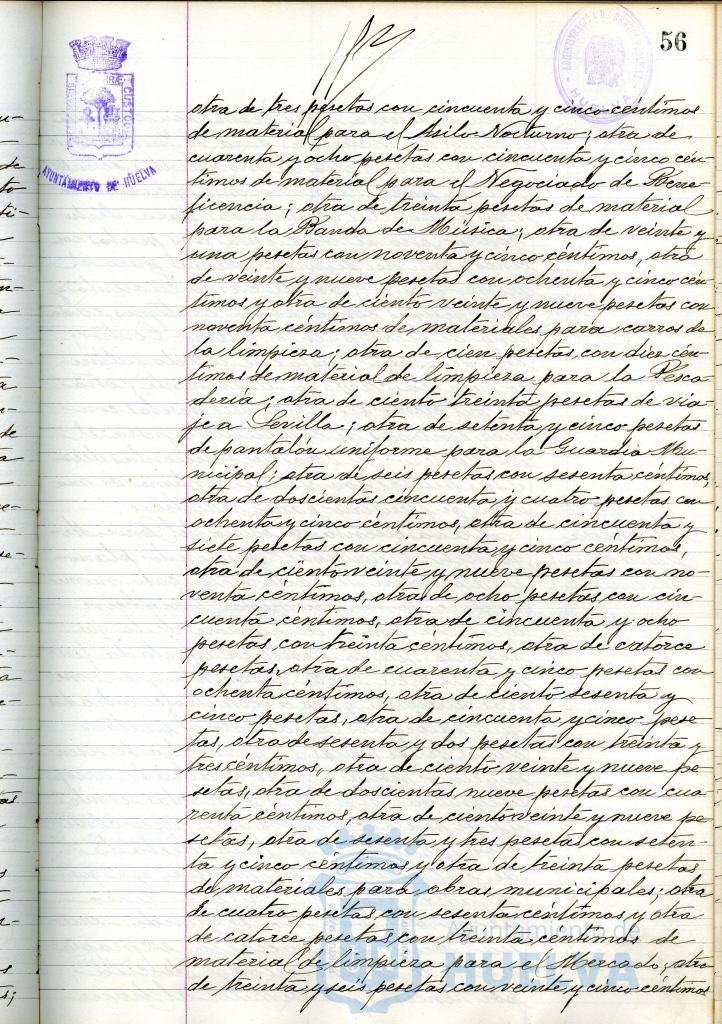 56
AYUNTAMIENTO DE HUELVA
HUELVA
otra de tres pesetas con cincuenta y cinco céntimos
de material para el Asilo Nocturno; otra de
cuarenta y ocho pesetas con cincuenta y cinco cén-
timos de material para el Negociado de Bene-
ficencia; otra de treinta pesetas de material
para la Banda de Música; otra de veinte y
una pesetas con noventa y cinco céntimos, otra
de veinte y nueve pesetas con ochenta y cinco cén-
timos y otra de ciento veinte y nueve pesetas con
noventa céntimos de materiales para carros de
la limpieza; otra de cien pesetas con diez cén-
timos de material de limpieza para la Pesca-
dería; otra de ciento treinta pesetas de via-
je a Sevilla; otra de setenta y cinco pesetas
de pantalón uniforme para la Guardia Mu-
nicipal; otra de seis pesetas con sesenta céntimos,
otra de doscientas cincuenta y cuatro pesetas con
ochenta y cinco céntimos, otra de cincuenta y
siete pesetas con cincuenta y cinco céntimos,
otra de ciento veinte y nueve pesetas con no-
venta céntimos, otra de ocho pesetas con cin-
cuenta céntimos, otra de cincuenta y ocho
pesetas con treinta céntimos, otra de catorce
pesetas, otra de cuarenta y cinco pesetas con
ochenta céntimos, otra de ciento sesenta y
cinco pesetas, otra de cincuenta y cinco pese-
tas, otra de sesenta y dos pesetas con treinta y
tres céntimos, otra de ciento veinte y nueve pe-
setas, otra de doscientas nueve pesetas con cua-
renta céntimos, otra de ciento veinte y nueve pe-
setas, otra de sesenta y tres peseta con seten-
ta y cinco céntimos y otra de treinta pesetas
de materiales para obras municipales; otra
de cuatro pesetas con sesenta céntimos y otra
de catorce pesetas con treinta céntimos de
material de limpieza para el Mercado; otra
de treinta y seis pesetas con veinte y cinco céntimos
Ayuntamiento de
HUELVA